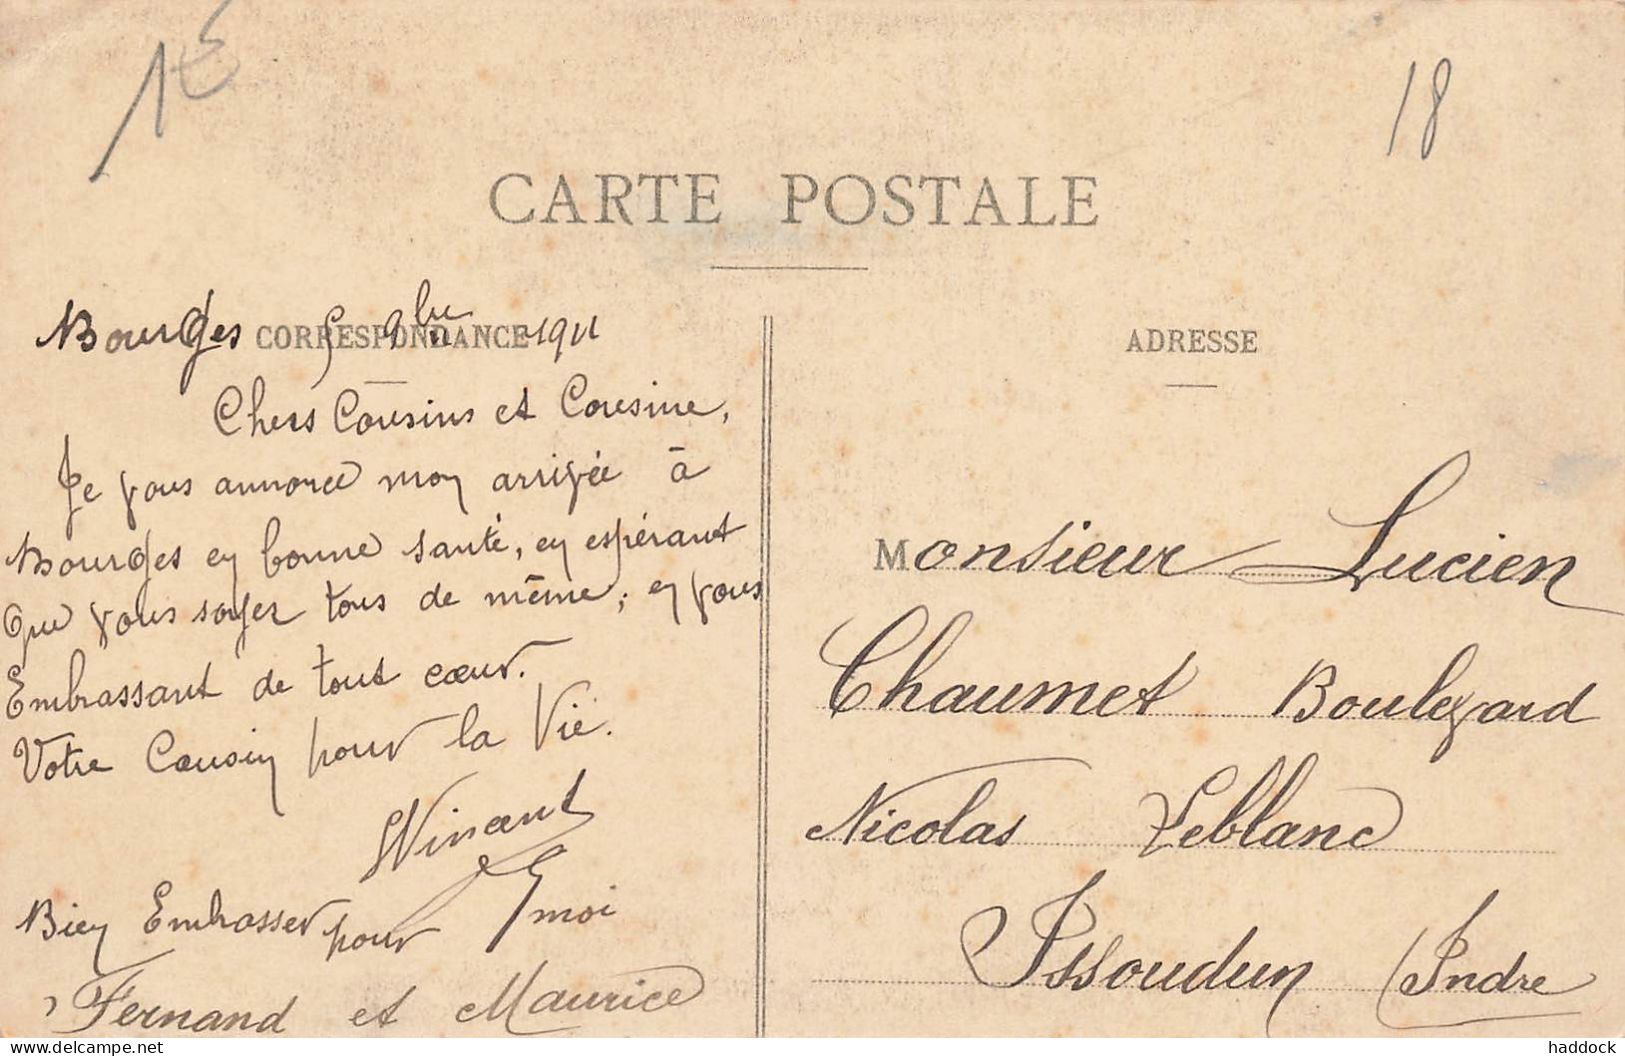 1€
18
CARTE POSTALE
CORRESPONDANCE
ADRESSE
Bourges 5 9bre 1911
Chers Cousins et Cousine,
Je vous annonce mon arrivée à
Bourges en bonne santé, en espérant
que vous soyez tous de même, en vous
Embrassant de tout cœur.
Votre Cousin pour la Vie.
Bien Embrasser pour moi
Fernand et Maurice
Monsieur Lucien
Chaumet Boulevard
Nicolas Leblanc
Issoudun (Indre
www.delcampe.net
haddock